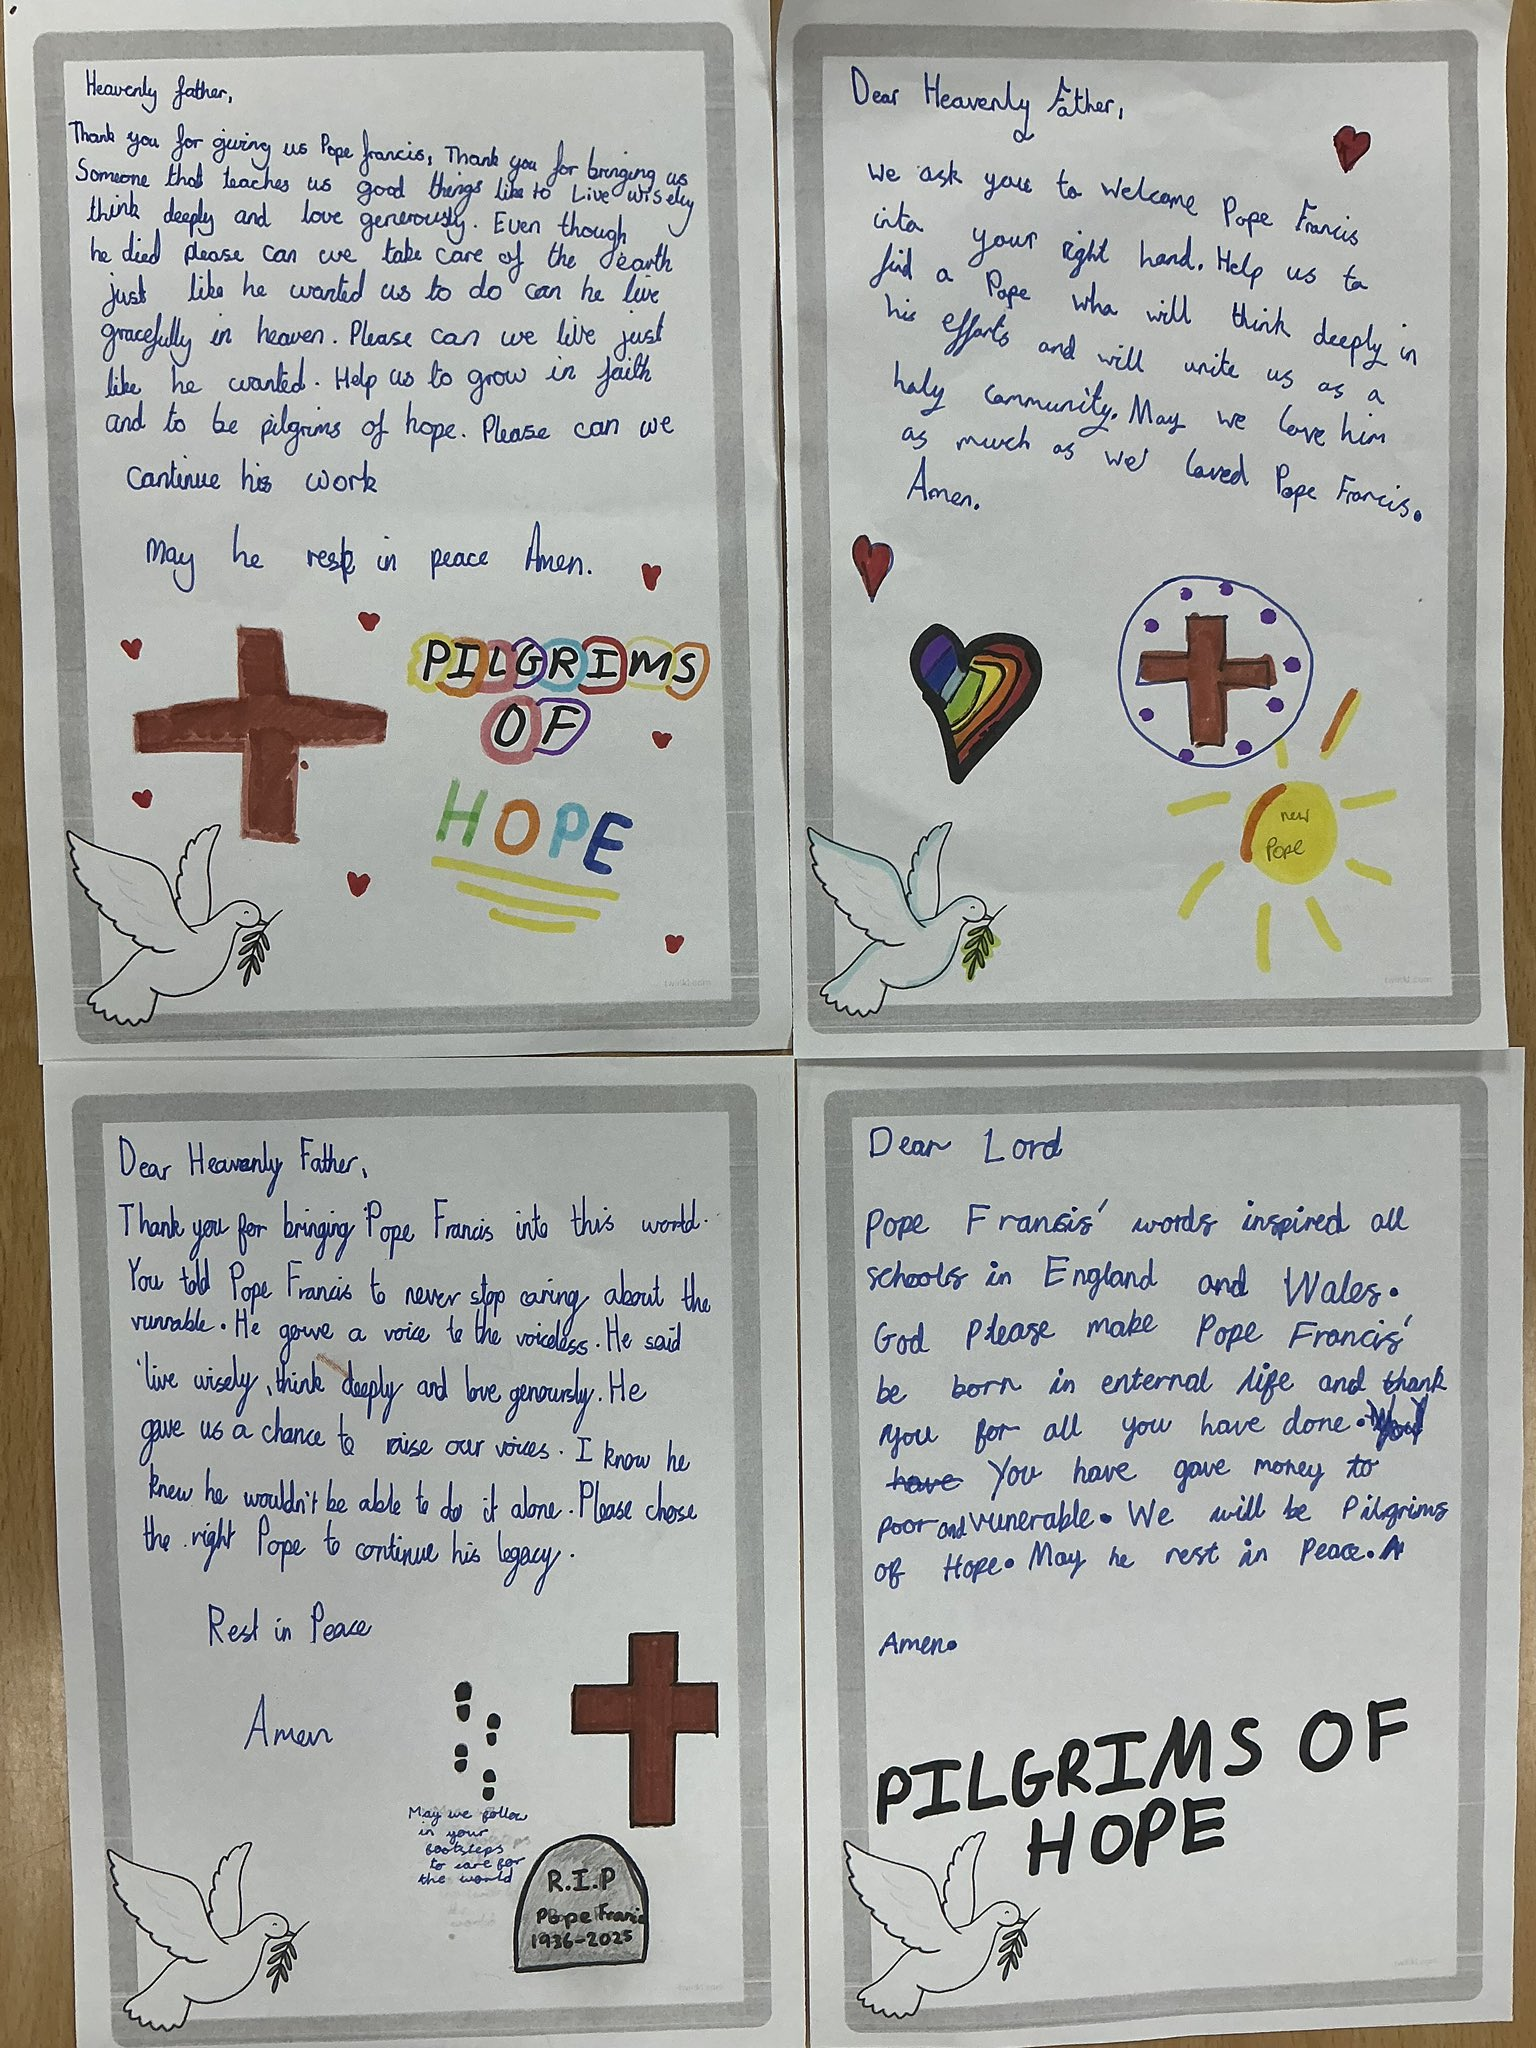 Heavenly father,
Thank you for giving us Pope francis, Thank you for bringing us
Someone that teaches us good things like to Live wisely
think deeply and love generously. Even though
he died please can we take care of the earth
just like he wanted us to do can he live
gracefully in heaven. Please can we live just
like he wanted. Help us to grow in faith
and to be pilgrims of hope. Please can we
continue his work
May he rest in peace Amen.
PILGRIMS
OF
HOPE
twinkl.com
Dear Heavenly Father,
We ask you to welcome Pope Francis
into your right hand. Help us to
find a Pope who will think deeply in
his efforts and will unite us as a
holy community. May we love him
as much as we loved Pope Francis.
Amen.
new
Pope
twinkl.com
Dear Heavenly Father,
Thank you for bringing Pope Francis into this world.
You told Pope Francis to never stop caring about the
vunrable. He gave a voice to the voiceless. He said
'live wisely, think deeply and love genoursly. He
gave us a chance to raise our voices. I know he
knew he wouldn't be able to do it alone. Please chose
the right Pope to continue his legacy.
Rest in Peace
Amen
May we follow
in your
footsteps
to care for
the world
R.I.P
Pope Franci
1936-2025
twinkl.com
Dear Lord
Pope Fransis' words inspired all
schools in England and Wales.
God Please make Pope Francis'
be born in enternal life and thank
you for all you have done. You
have You have gave money to
poor and vunerable. We will be Pilgrims
of Hope. May he rest in Peace. A
Amen.
PILGRIMS OF
HOPE
twinkl.com